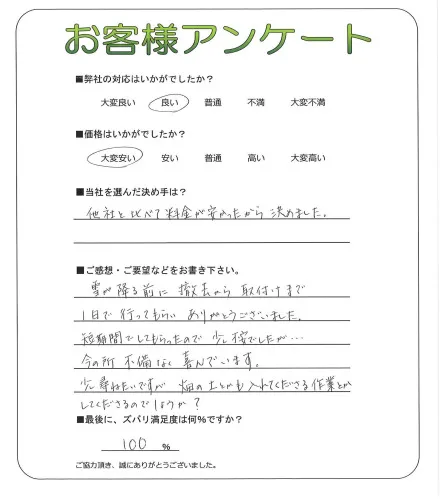 お客様アンケート
■弊社の対応はいかがでしたか？
大変良い 良い 普通 不満 大変不満
■価格はいかがでしたか？
大変安い 安い 普通 高い 大変高い
■当社を選んだ決め手は？
他社と比べて料金が安かったから決めました。
■ご感想・ご要望などをお書き下さい。
雪が降る前に 撤去から 取付けまで
1日で行ってもらい ありがとうございました。
短期間でしてもらったので 少し でしたが…
今の所 不備なく 喜んでいます。
少し尋ねたいですが 畑の土とかも入れてくださる作業とか
してくださるのでしょうか？
■最後に、ズバリ満足度は何%ですか？
100 %
ご協力頂き、誠にありがとうございました。